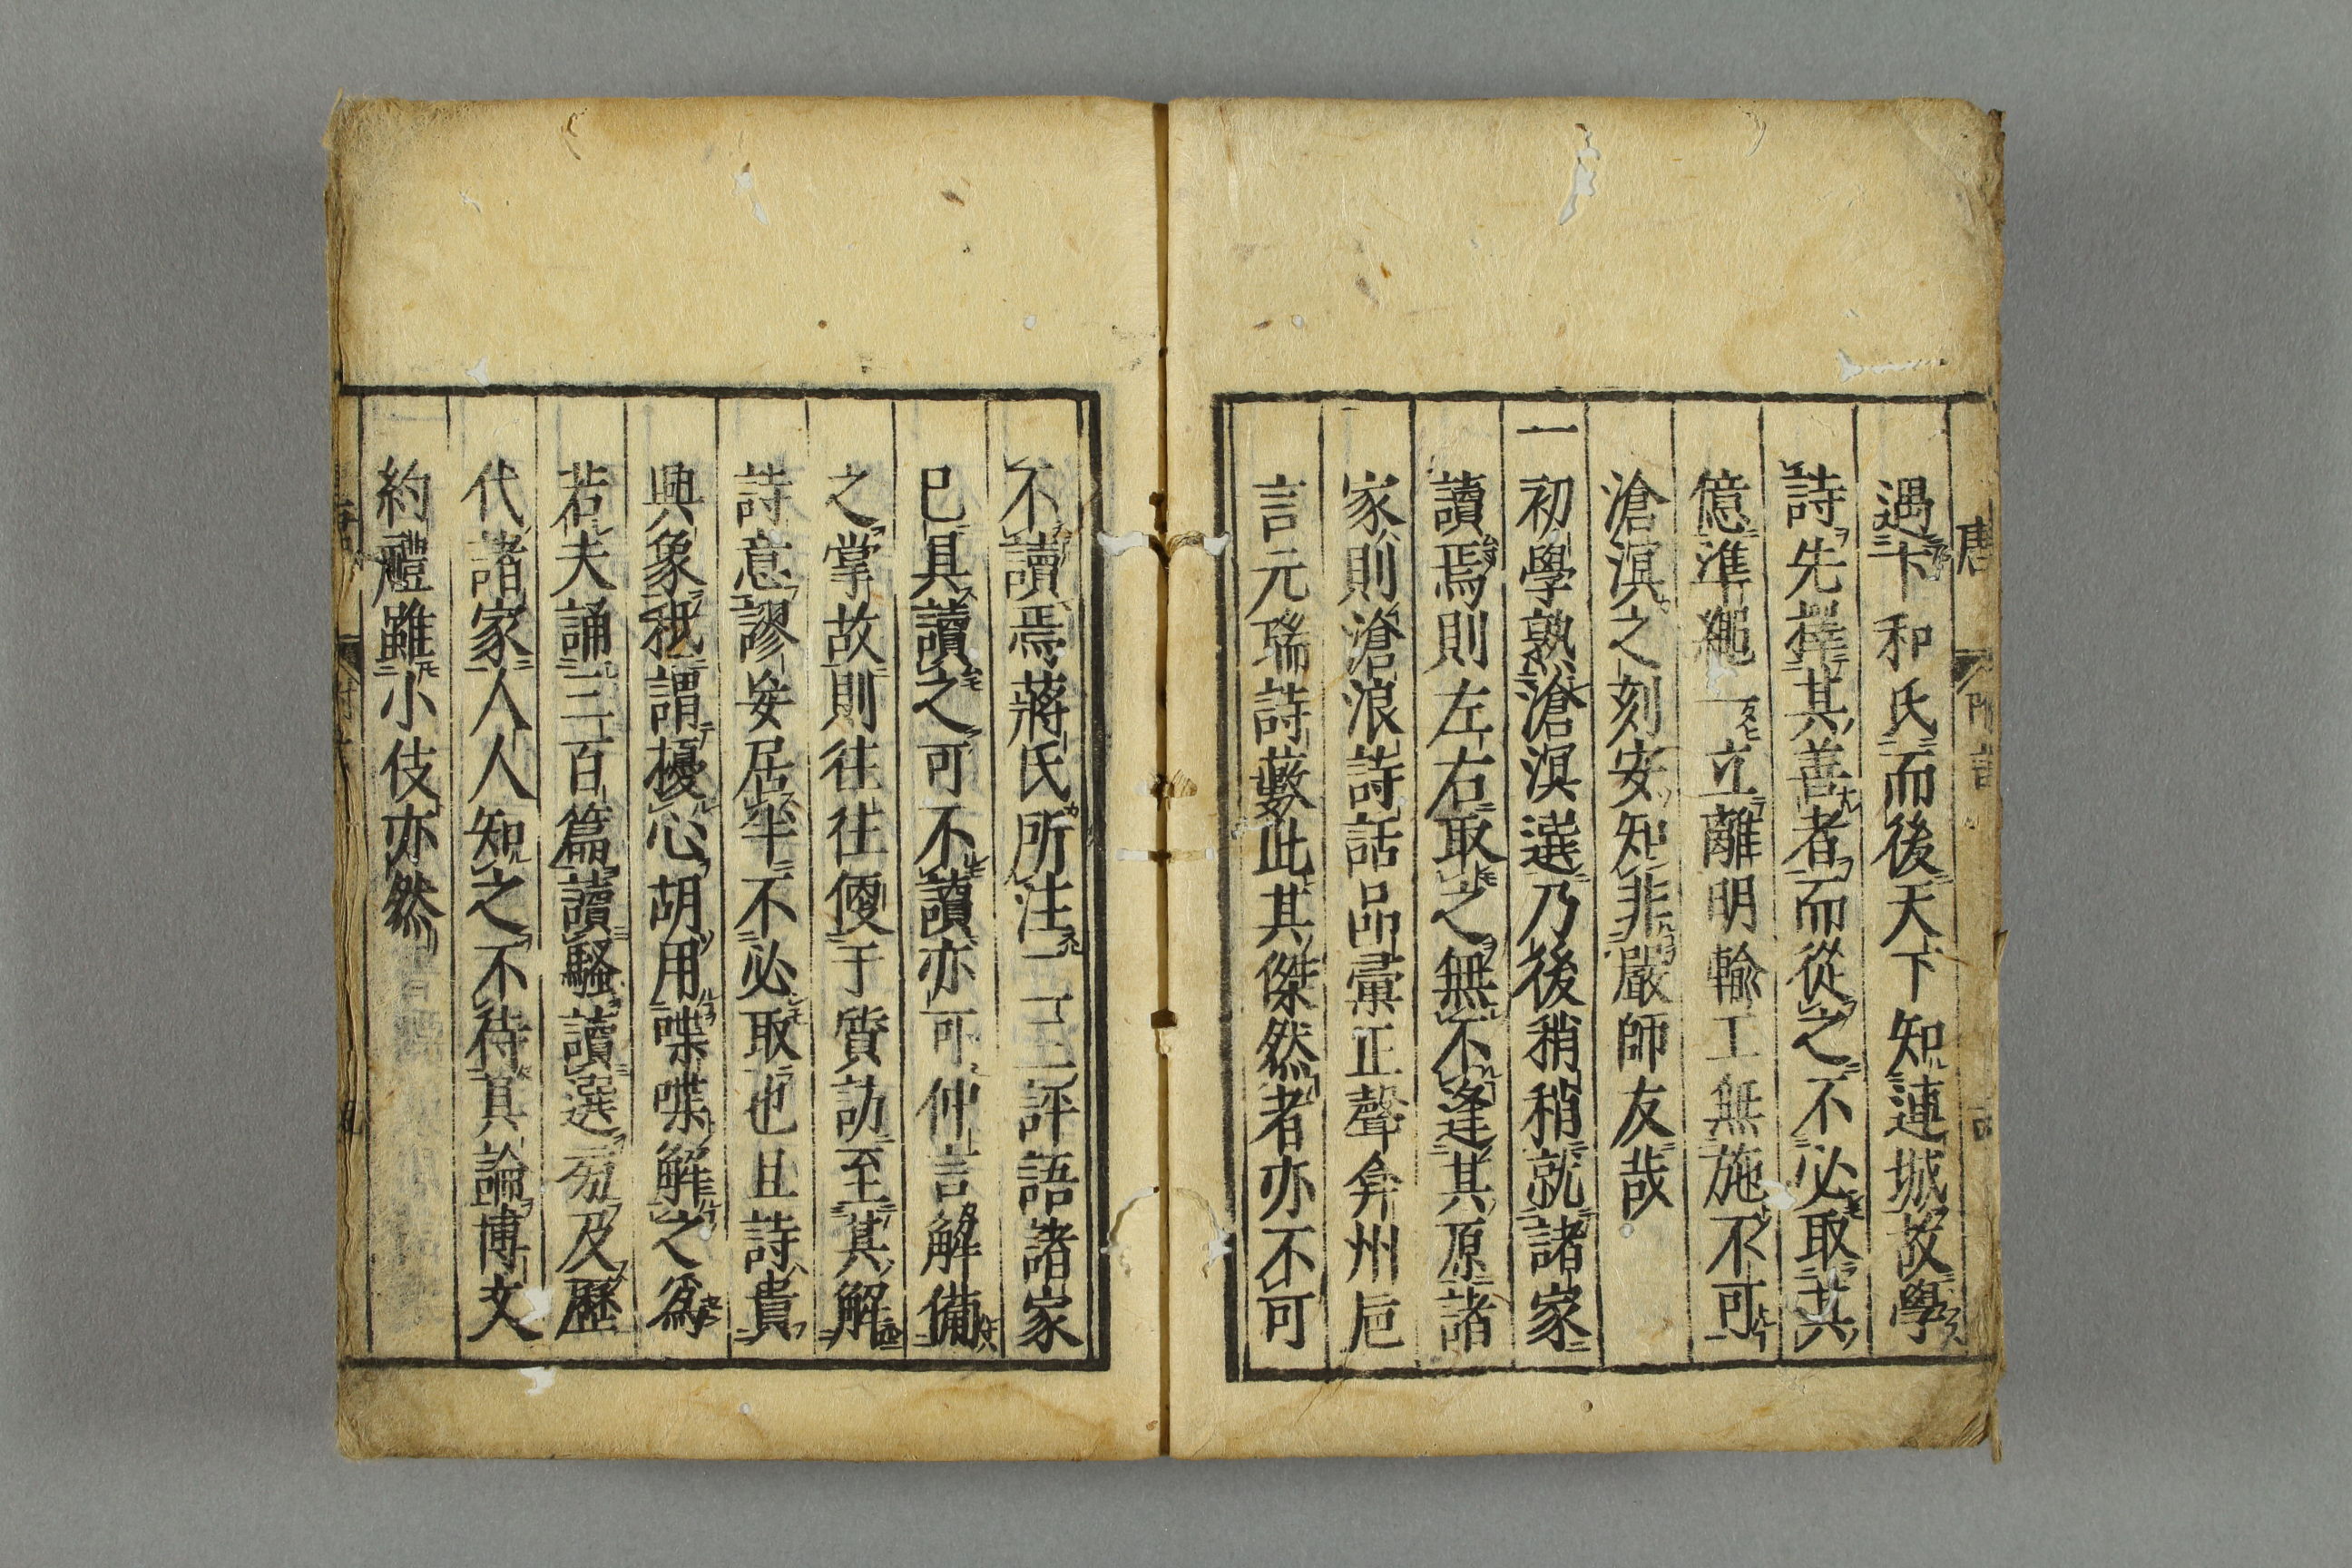 唐 附言
遇卞和氏而後天下知連城故學
詩先擇其善者而從之不必取其
億準繩一立離明輸工無施不可
滄溟之刻安知非嚴師友哉
一初學熟滄溟選乃後稍稍就諸家
讀焉則左右取之無不逢其原諸
家則滄浪詩話品彙正聲弇州巵
言元瑞詩藪此其傑然者亦不可
不讀焉蔣氏所注一二評語諸家
已具讀之可不讀亦可仲言解備
之掌故則往往傻于質訪至其解
詩意謬妄居半不必取也且詩貴
興象秖謂擾心胡用喋喋解之為
若夫誦三百篇讀騷讀選旁及歷
代諸家人人知之不待其論博文
約禮雖小伎亦然